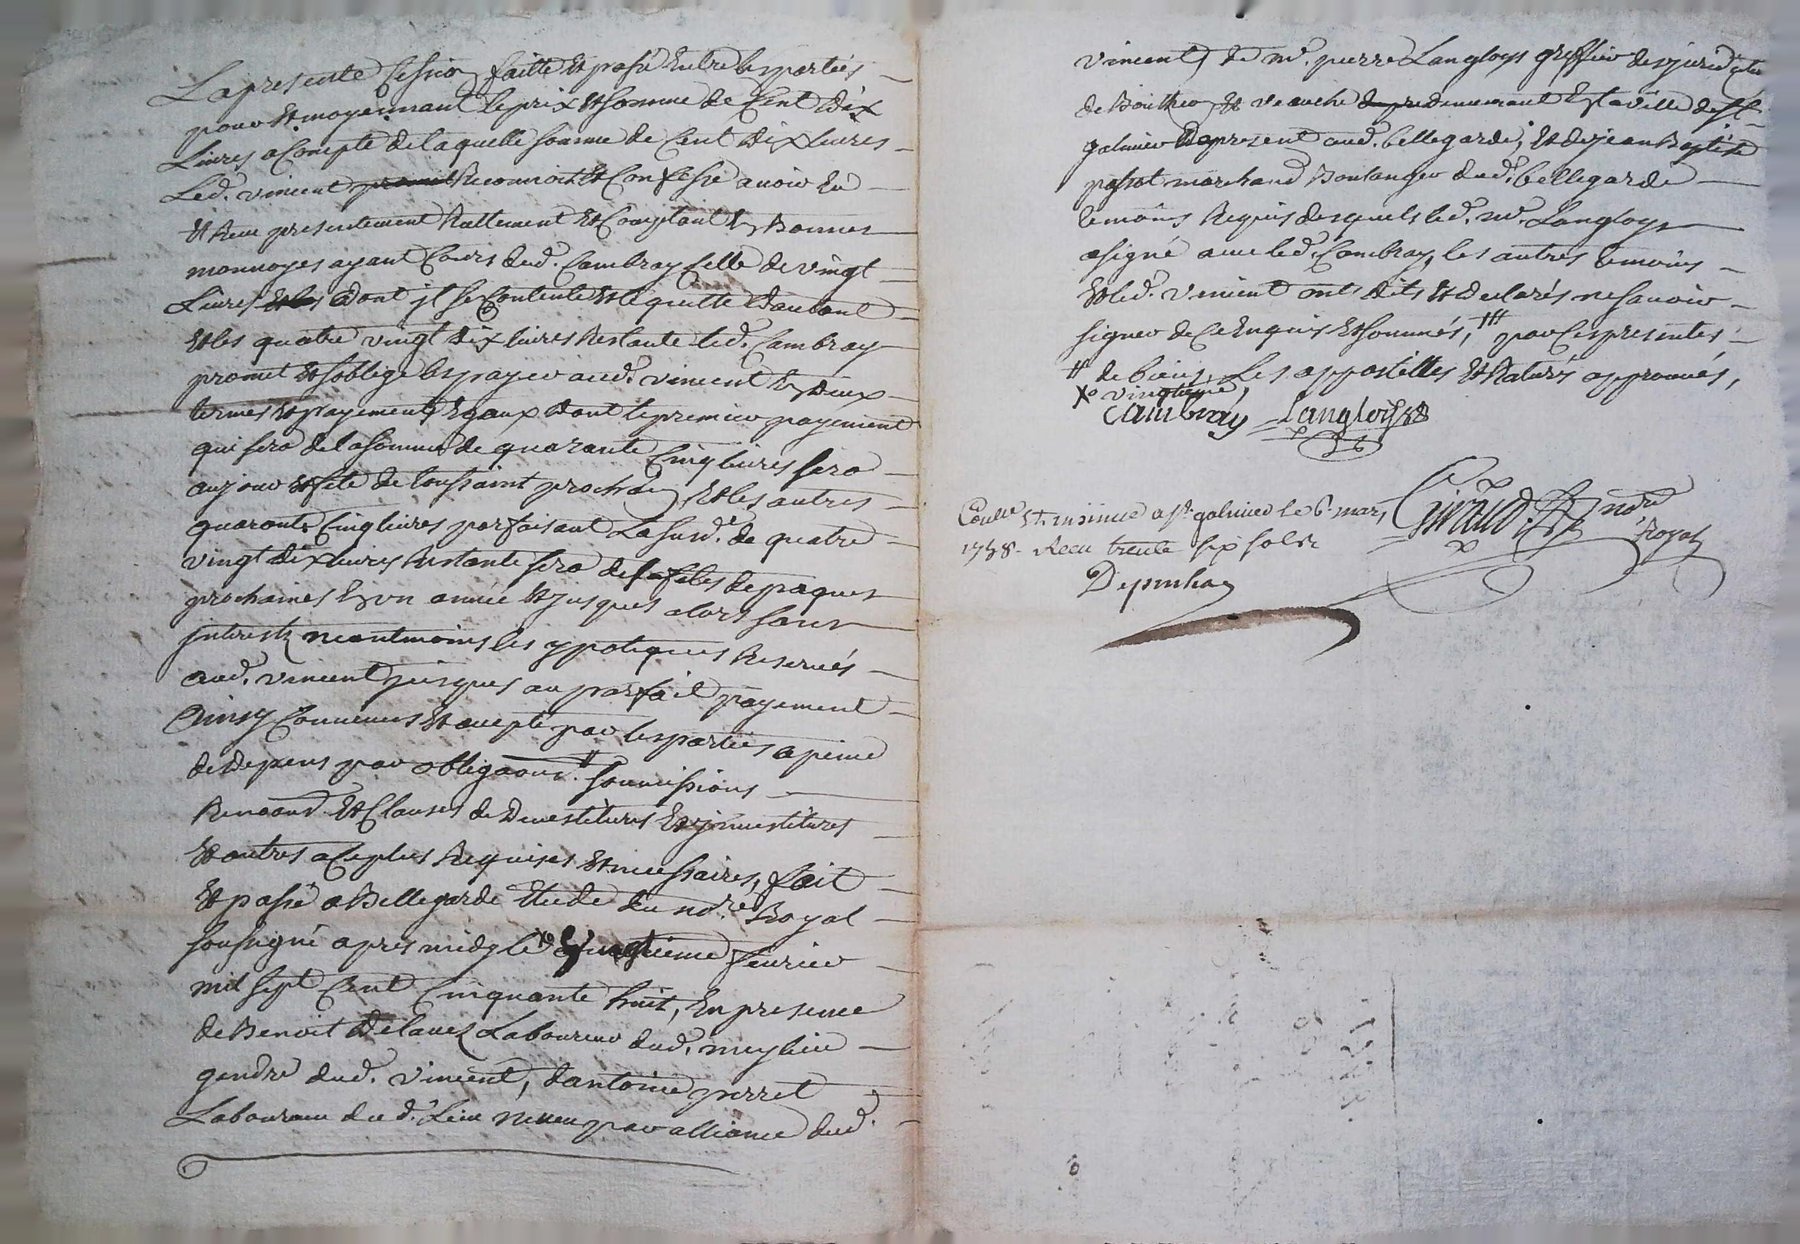 La presente Cession faitte Et passé Entre les parties
pour Et moyennant le prix Et somme de Cent Dix
Livres a Compte de laquelle somme de Cent Dix Livres
Led. vincent Reconnoit Et Confesse avoir Eu
Et Receu presentement Reellement Et Comptant En Bonnes
monnoyes ayant Cours dud. Cambray Celle de vingt
Livres dont jl se Contente Et le quitte D'autant
Et les quatre vingt dix livres Restante led. Cambray
promet Et soblige les payer aud. vincent En Deux
termes Et payements Egaux Dont le premier payement
qui sera de la somme de quarante Cinq livres sera
au jour Et fete de toussaint prochain Et les autres
quarante Cinq livres parfaisant La susd.e de quatre
vingt dix livres Restante sera des fetes de paques
prochaines En un année Et jusques alors sans
jnterests neantmoins les ypoteques Reservés
aud. vincent jusques au parfait payement
Ainsy Convenus Et accepté par les parties a peine
de depens par obligaons # soumissions
Renoond. Et Clauses de Devestitures Et jnvestitures
Et autres a Ce plus Requises Et necessaires, fait
Et passé a Bellegarde Etude du no.re Royal
soussigné apres midy le fevrier
mil sept Cent Cinquante huit, En presence
de Benoit Laboureur dud. meylieu
gendre dud. vincent, d'antoine perret
Laboureur dud. Lieu neveu par alliance dud.
vincent, de m.r pierre Langloys greffier des
de Bouthéon Et veauche Enla ville de St
galmier Apresent aud. bellegarde, Et de jean Baptiste
passot marchand Boulanger dud. bellegarde
temoins Requis desquels led. m.r Langloys
a signé avec led. Cambray, les autres temoins
Et led. vincent ont dits Et declarés ne savoir
signer de Ce Enquis Et sommés, par Ces presentes
# de biens, Les appostilles Et Raturés approuvés,
Xo vingtieme,
Cambray Langlois
Giraud no.re
Royal
Con.lé Et insinué a St galmier le 6.e mars
1758. Receu trente six sols
Depunhan